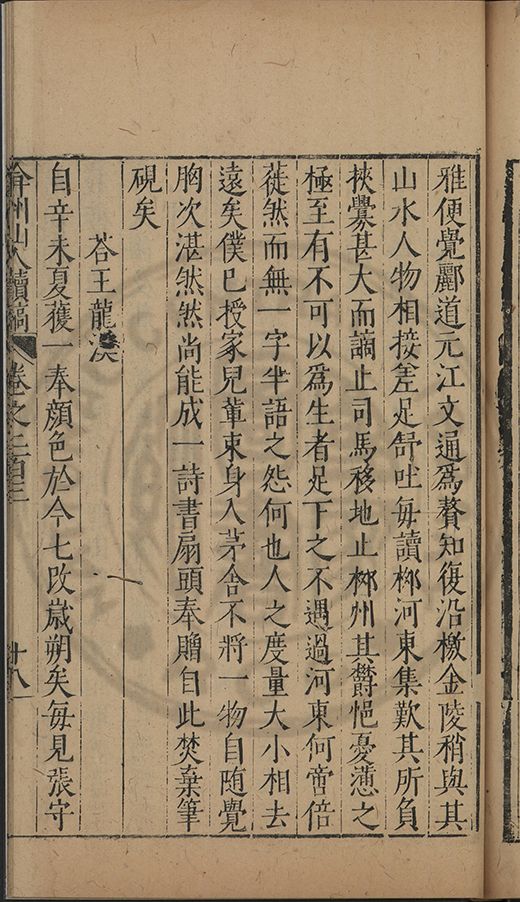 雅便覺酈道元江文通爲贅知復沿檄金陵稍與其
山水人物相接差足舒吐每讀栁河東集歎其所負
挾㸑甚大而謫止司馬移地止栁州其欝悒憂懣之
極至有不可以爲生者足下之不遇過河東何啻倍
蓰然而無一字半語之怨何也人之度量大小相去
遠矣僕巳授家兒軰束身入茅舎不將一物自随覺
胸次湛然然尚能成一詩書扇頭奉贈自此焚棄筆
硯矣
荅王龍溪
自辛未夏獲一奉顔色於今七改歳朔矣每見張守
弇州山人續稿 卷之二百三 十八